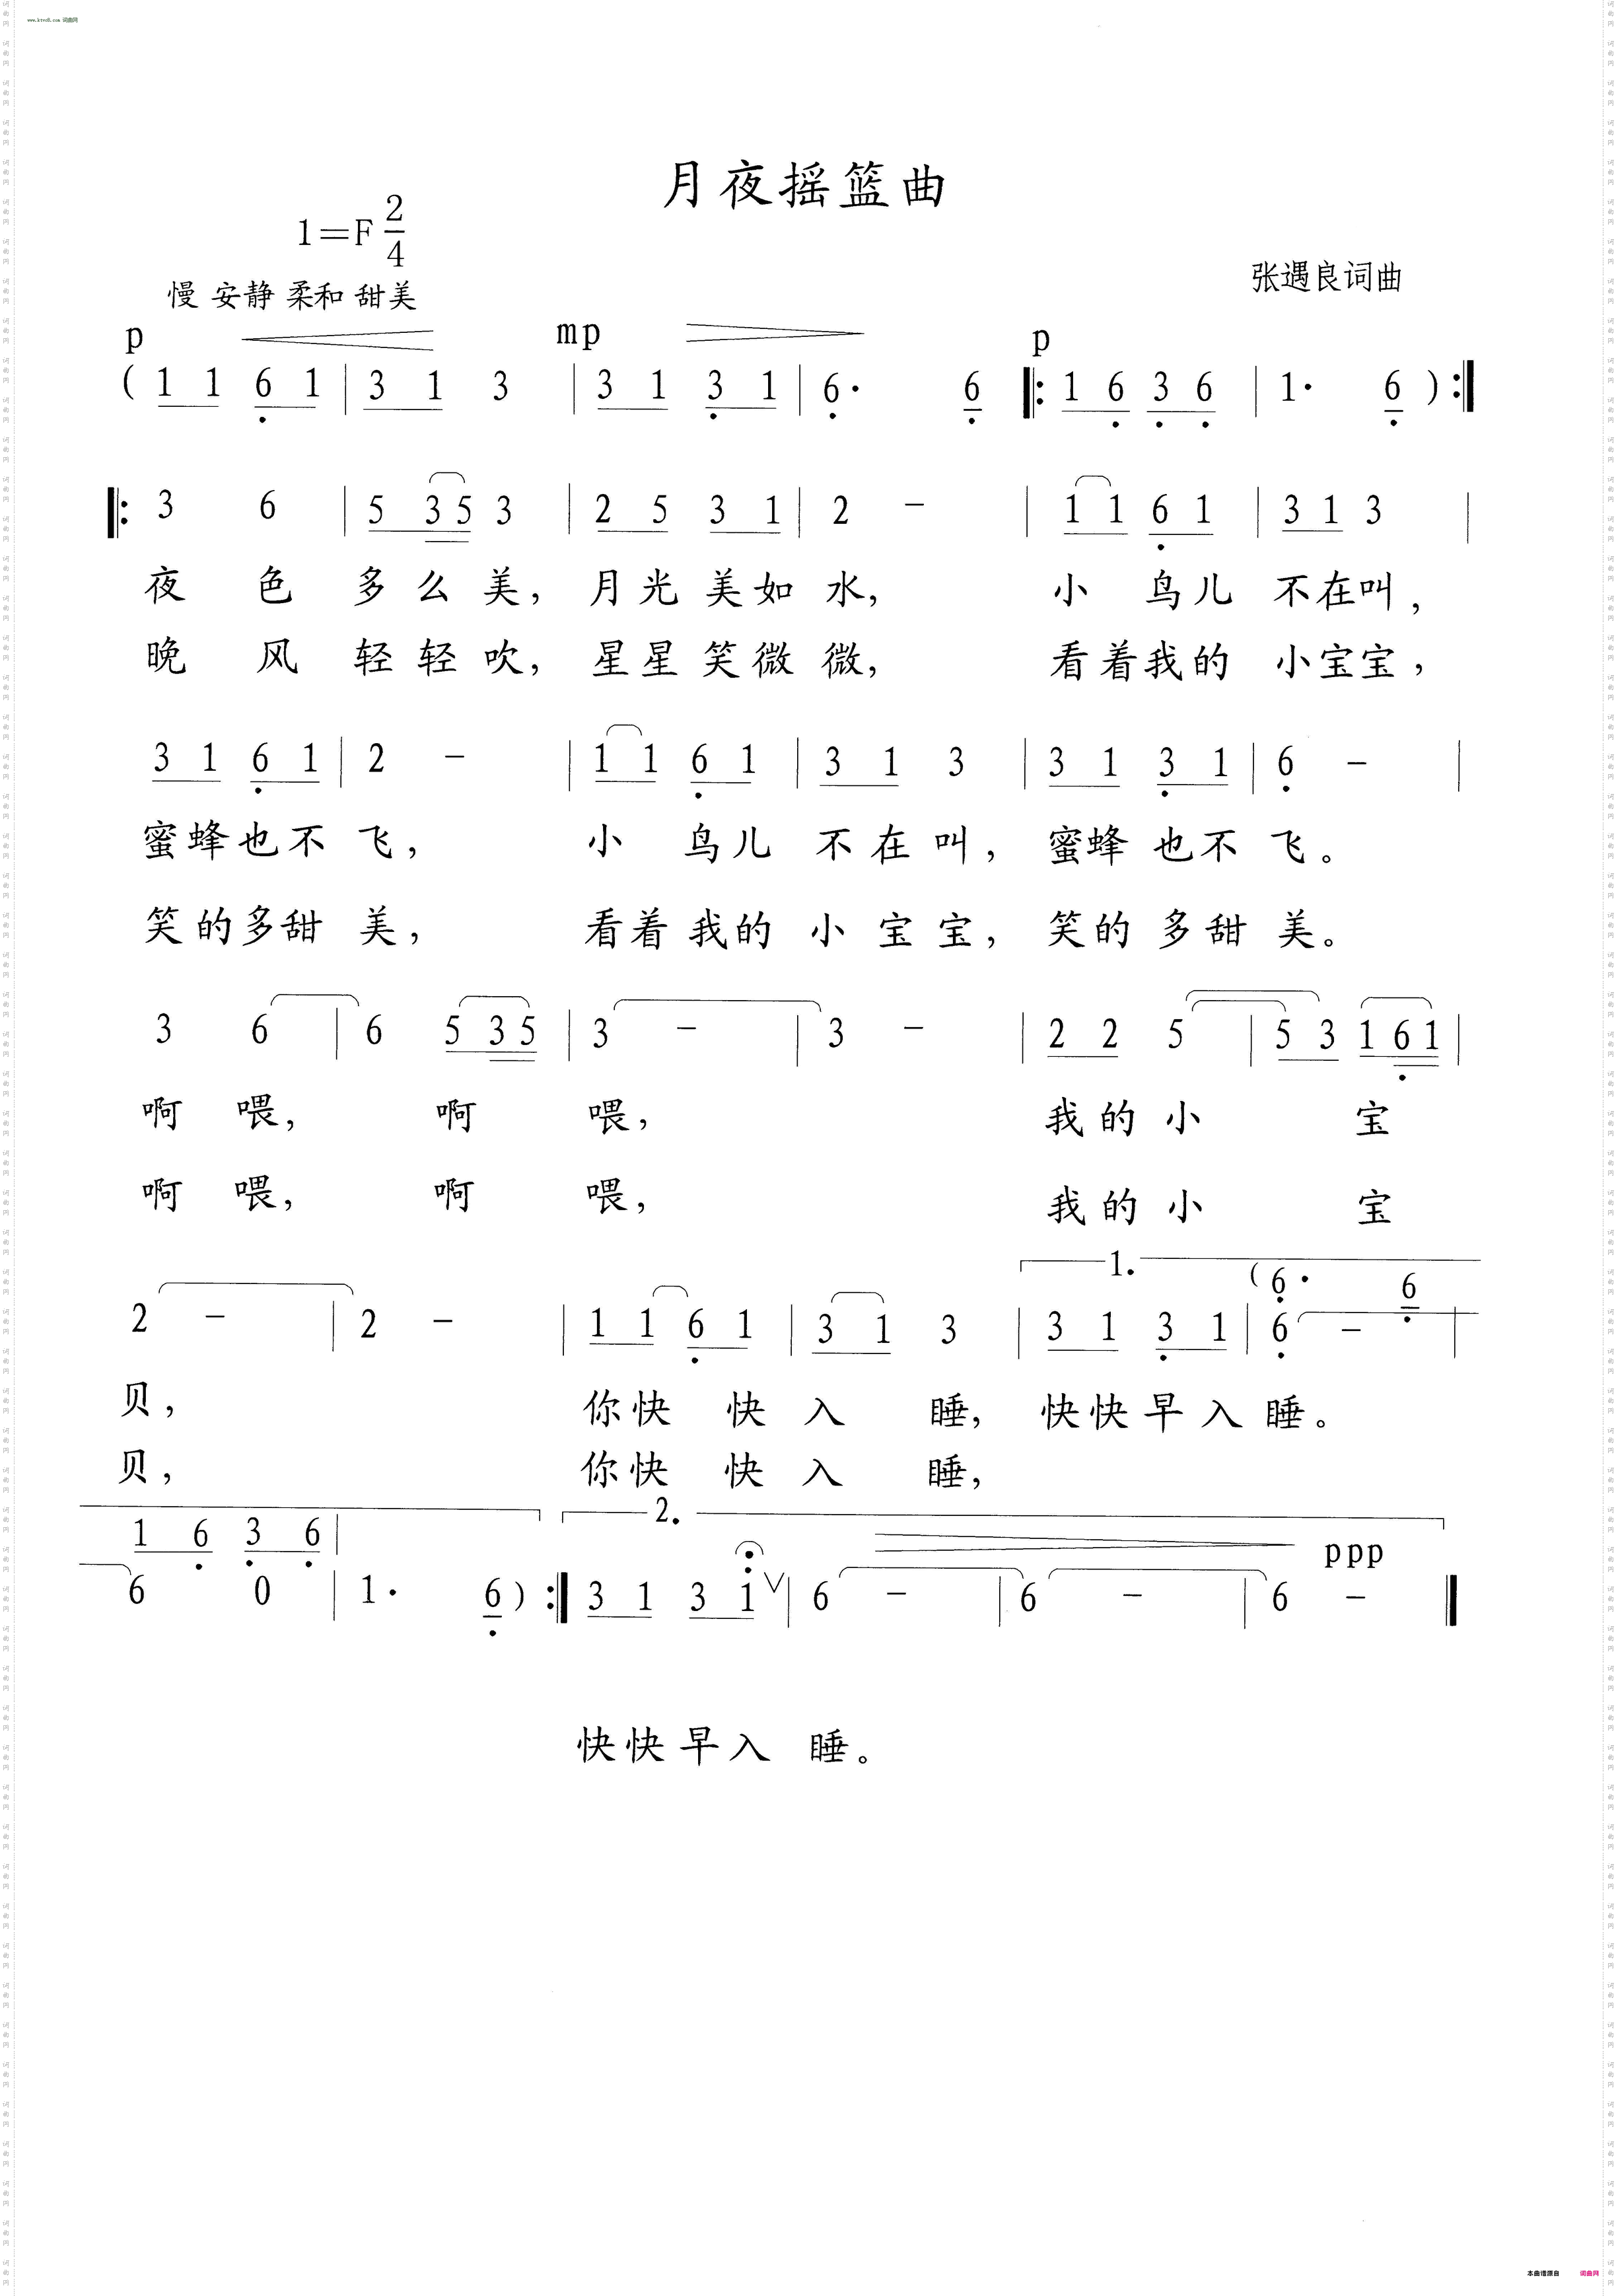 www.ktvc8.com 词曲网
月夜摇篮曲
1=F 2/4
慢 安静 柔和 甜美
张遇良词曲
p mp p
( 1 1 6̣ 1 | 3 1 3 | 3 1 3̣ 1 | 6̣· 6̣ ‖: 1 6̣ 3̣ 6̣ | 1· 6̣ ) :‖
‖: 3 6 | 5 3 5 3 | 2 5 3 1 | 2 － | 1 1 6̣ 1 | 3 1 3 |
夜 色 多 么 美， 月光 美如 水， 小 鸟儿 不在叫，
晚 风 轻 轻 吹， 星星 笑微 微， 看着我的 小宝宝，
3 1 6̣ 1 | 2 － | 1 1 6̣ 1 | 3 1 3 | 3 1 3̣ 1 | 6̣ － |
蜜蜂也不 飞， 小 鸟儿 不在 叫， 蜜蜂 也不 飞。
笑的多甜 美， 看着 我的 小宝 宝， 笑的 多甜 美。
3 6 | 6 5 3 5 | 3 － | 3 － | 2 2 5 | 5 3 1 6̣ 1 |
啊 喂， 啊 喂， 我的小 宝
啊 喂， 啊 喂， 我的小 宝
1.
( 6̣· 6̣
2 － | 2 － | 1 1 6̣ 1 | 3 1 3 | 3 1 3̣ 1 | 6̣ － |
贝， 你快 快 入 睡， 快快早入睡。
贝， 你快 快 入 睡，
2.
1 6̣ 3̣ 6̣ | ppp
6 0 | 1· 6̣ ) :‖ 3 1 3 1̇ ∨ | 6 － | 6 － | 6 － ‖
快快早入 睡。
本曲谱原自 词曲网